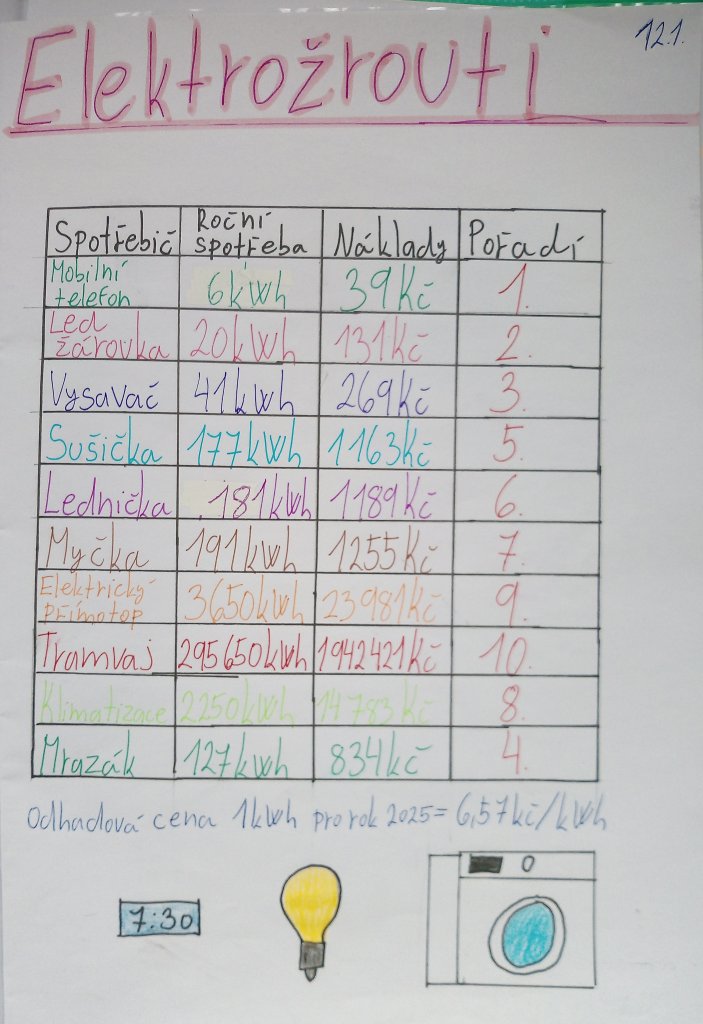 12.1.
Elektrožrouti
Spotřebič Roční spotřeba Náklady Pořadí
Mobilní telefon 6kWh 39Kč 1.
Led žárovka 20kWh 131Kč 2.
Vysavač 41kWh 269Kč 3.
Sušička 177kWh 1163Kč 5.
Lednička 181kWh 1189Kč 6.
Myčka 191kWh 1255Kč 7.
Elektrický přímotop 3650kWh 23981Kč 9.
Tramvaj 295650kWh 1942421Kč 10.
Klimatizace 2250kWh 14783Kč 8.
Mrazák 127kWh 834kč 4.
Odhadová cena 1kWh pro rok 2025= 6,57kč/kWh
7:30
0